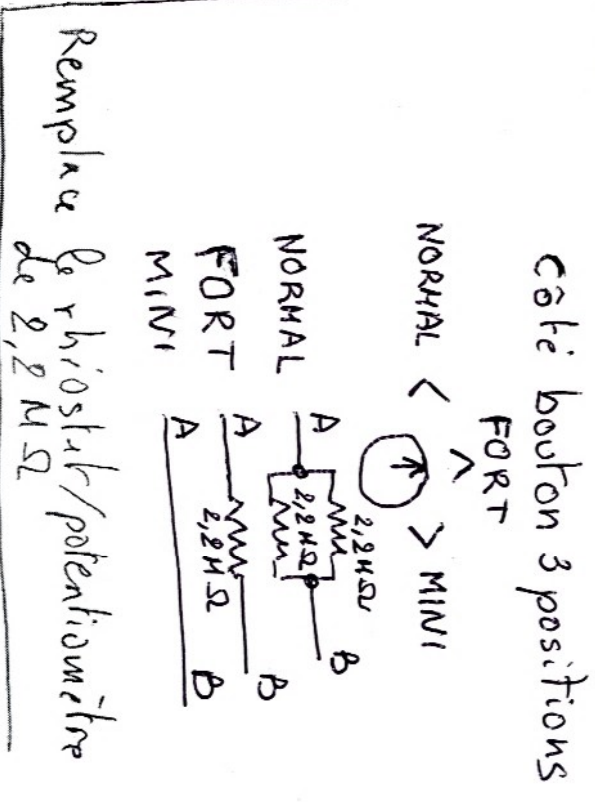 Côté bouton 3 positions
FORT
^
NORMAL < > MINI
NORMAL A 2,2MΩ 2,2MΩ B
FORT A 2,2MΩ B
MINI A B
Remplace le rhiostat/potentiomètre
de 2,2 MΩ